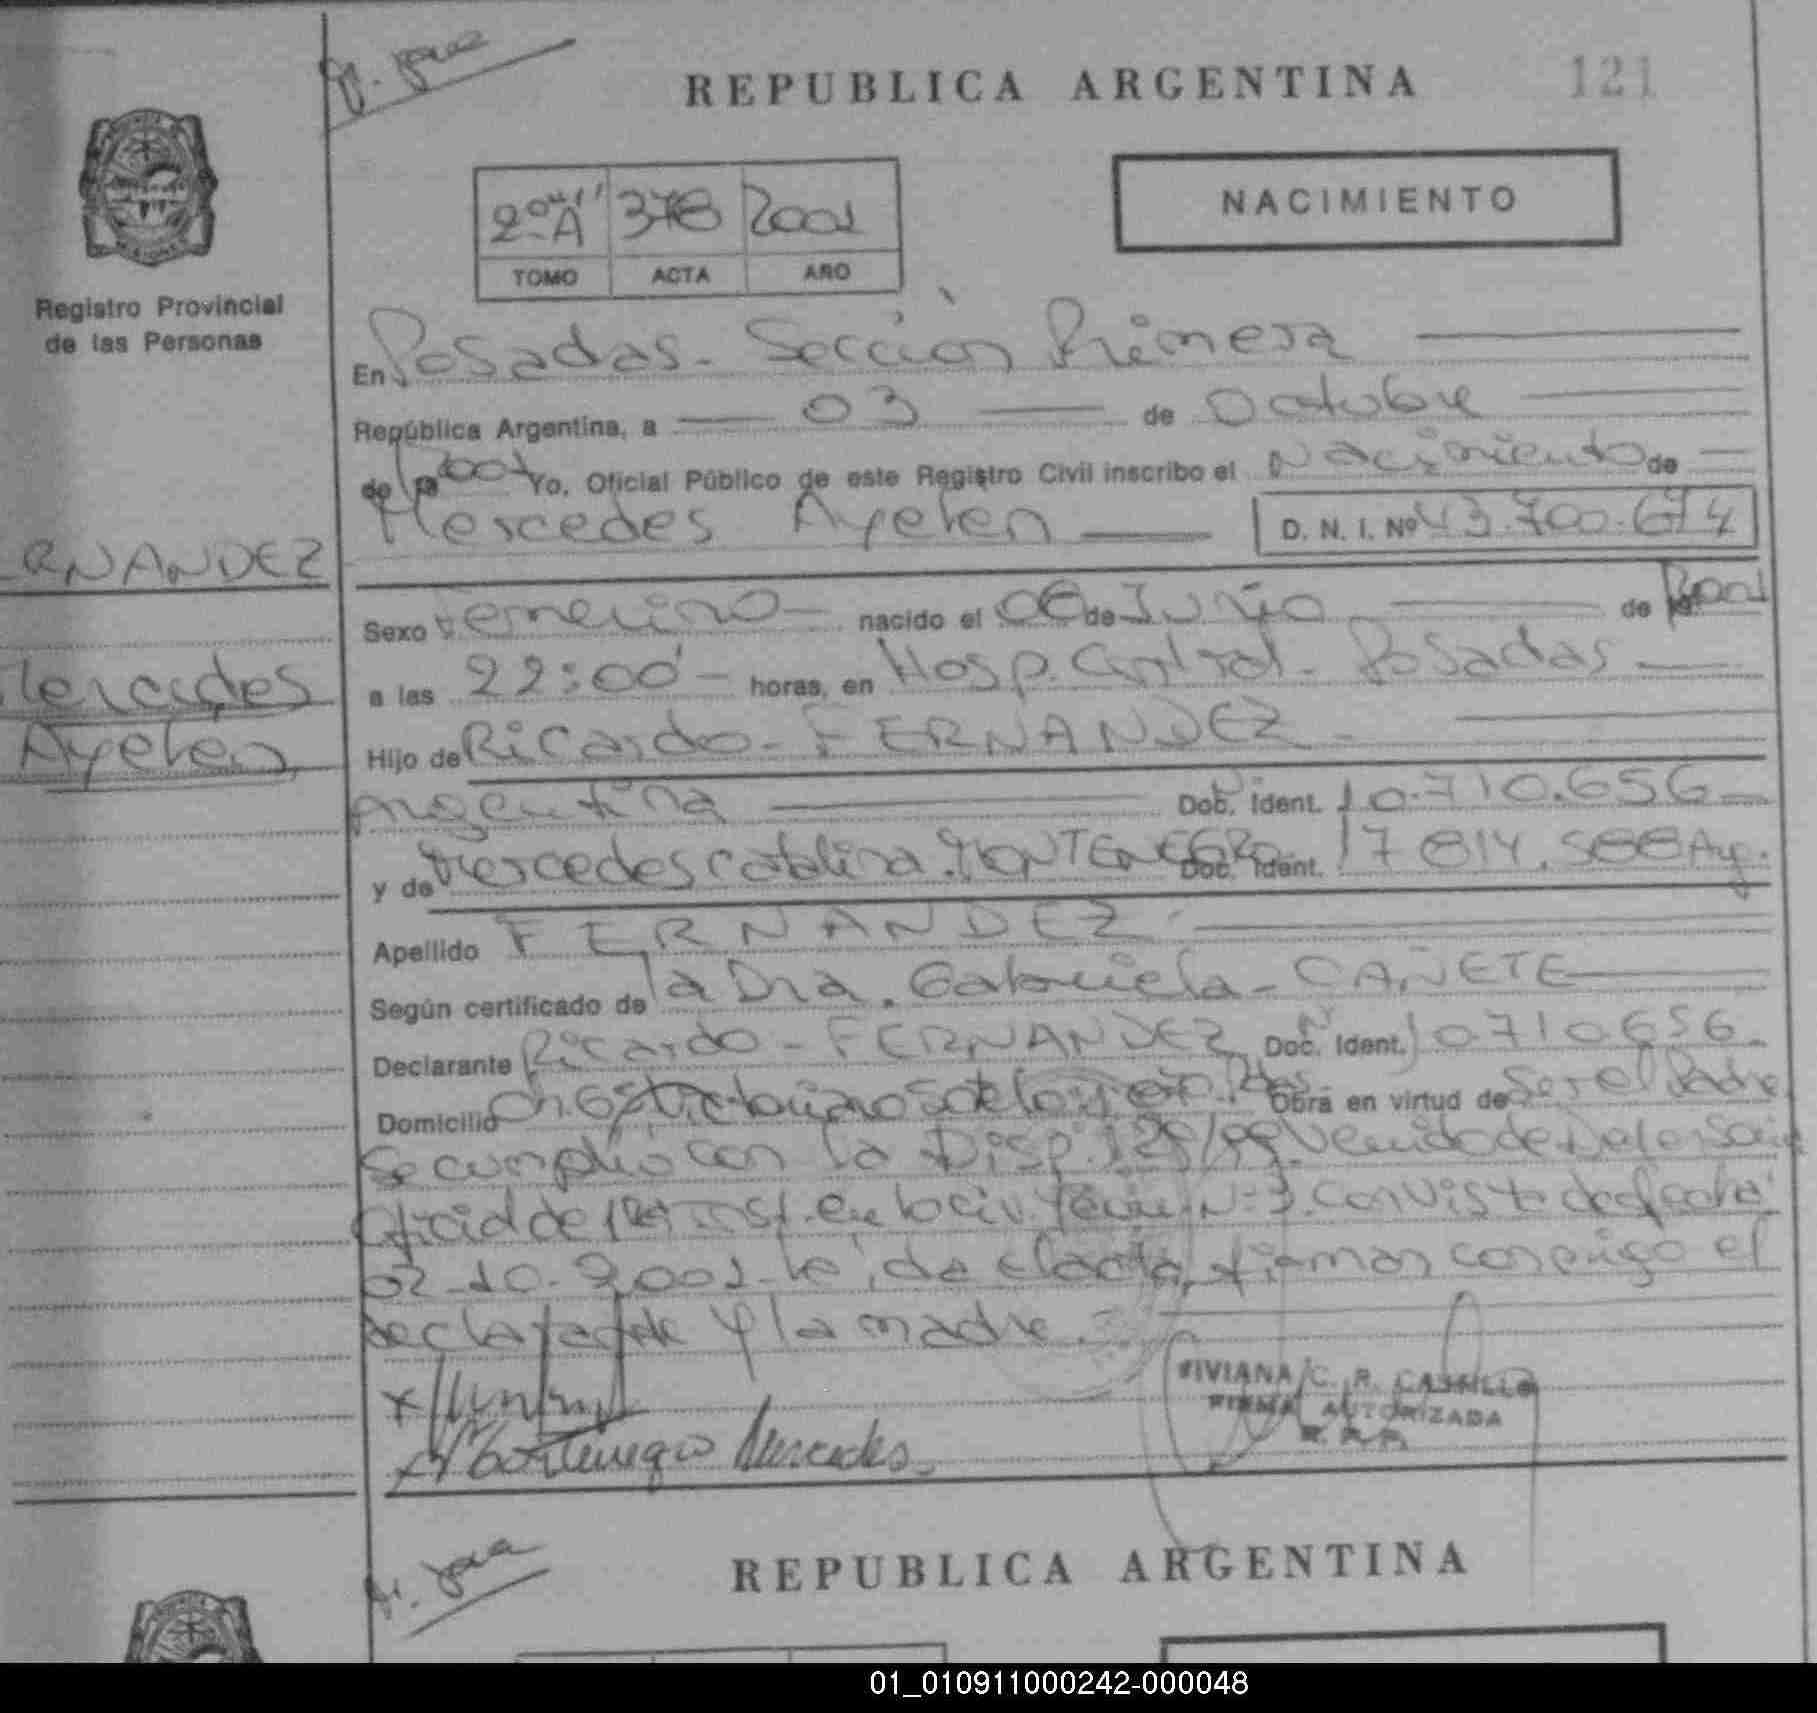 REPUBLICA ARGENTINA
121
2º "A" 378 2001
TOMO ACTA AÑO
NACIMIENTO
Registro Provincial
de las Personas
En Posadas - Sección Primera
República Argentina, a 03 de Octubre
de 2001 Yo, Oficial Público de este Registro Civil inscribo el Nacimiento de
Mercedes Ayelen D. N. I. Nº 43.700.674
ERNANDEZ
Mercedes
Ayelen
Sexo Femenino nacido el 06 de Junio de 2001
a las 22:00 horas, en Hosp. Central - Posadas
Hijo de Ricardo - FERNANDEZ -
Argentina Doc. Ident. 10.710.656
y de Mercedes Catalina MONTENEGRO Doc. Ident. 17.814.588 Arg.
Apellido FERNANDEZ
Según certificado de la Dra. Gabriela - CAÑETE
Declarante Ricardo - FERNANDEZ Doc. Ident. 10710656
Domicilio Obra en virtud de Ser el Padre
Se cumplió con la Disp. 129/99 Venido de Defensoría
Oficial de 1ra Inst. en lo Civ. Nº 3 con vista de fecha
02-10-2001 leída el acta, firman conmigo el
declarante y la madre.
Montenegro Mercedes
VIVIANA C. R. CASTILLO
FIRMA AUTORIZADA
R. P. P.
REPUBLICA ARGENTINA
01_010911000242-000048